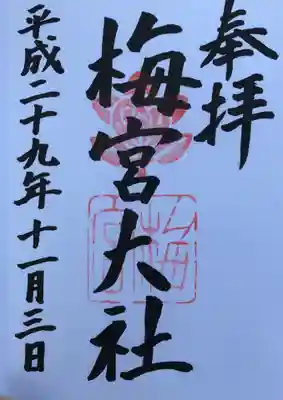 奉拝
梅宮大社
平成二十九年十一月三日